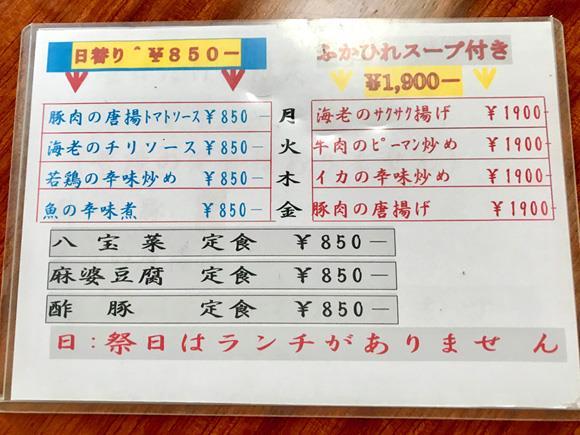 日替り ¥850-
ふかひれスープ付き
¥1,900-
豚肉の唐揚トマトソース ¥850- 月 海老のサクサク揚げ ¥1900-
海老のチリソース ¥850- 火 牛肉のピーマン炒め ¥1900-
若鶏の辛味炒め ¥850- 木 イカの辛味炒め ¥1900-
魚の辛味煮 ¥850- 金 豚肉の唐揚げ ¥1900-
八宝菜 定食 ¥850-
麻婆豆腐 定食 ¥850-
酢豚 定食 ¥850-
日:祭日はランチがありません